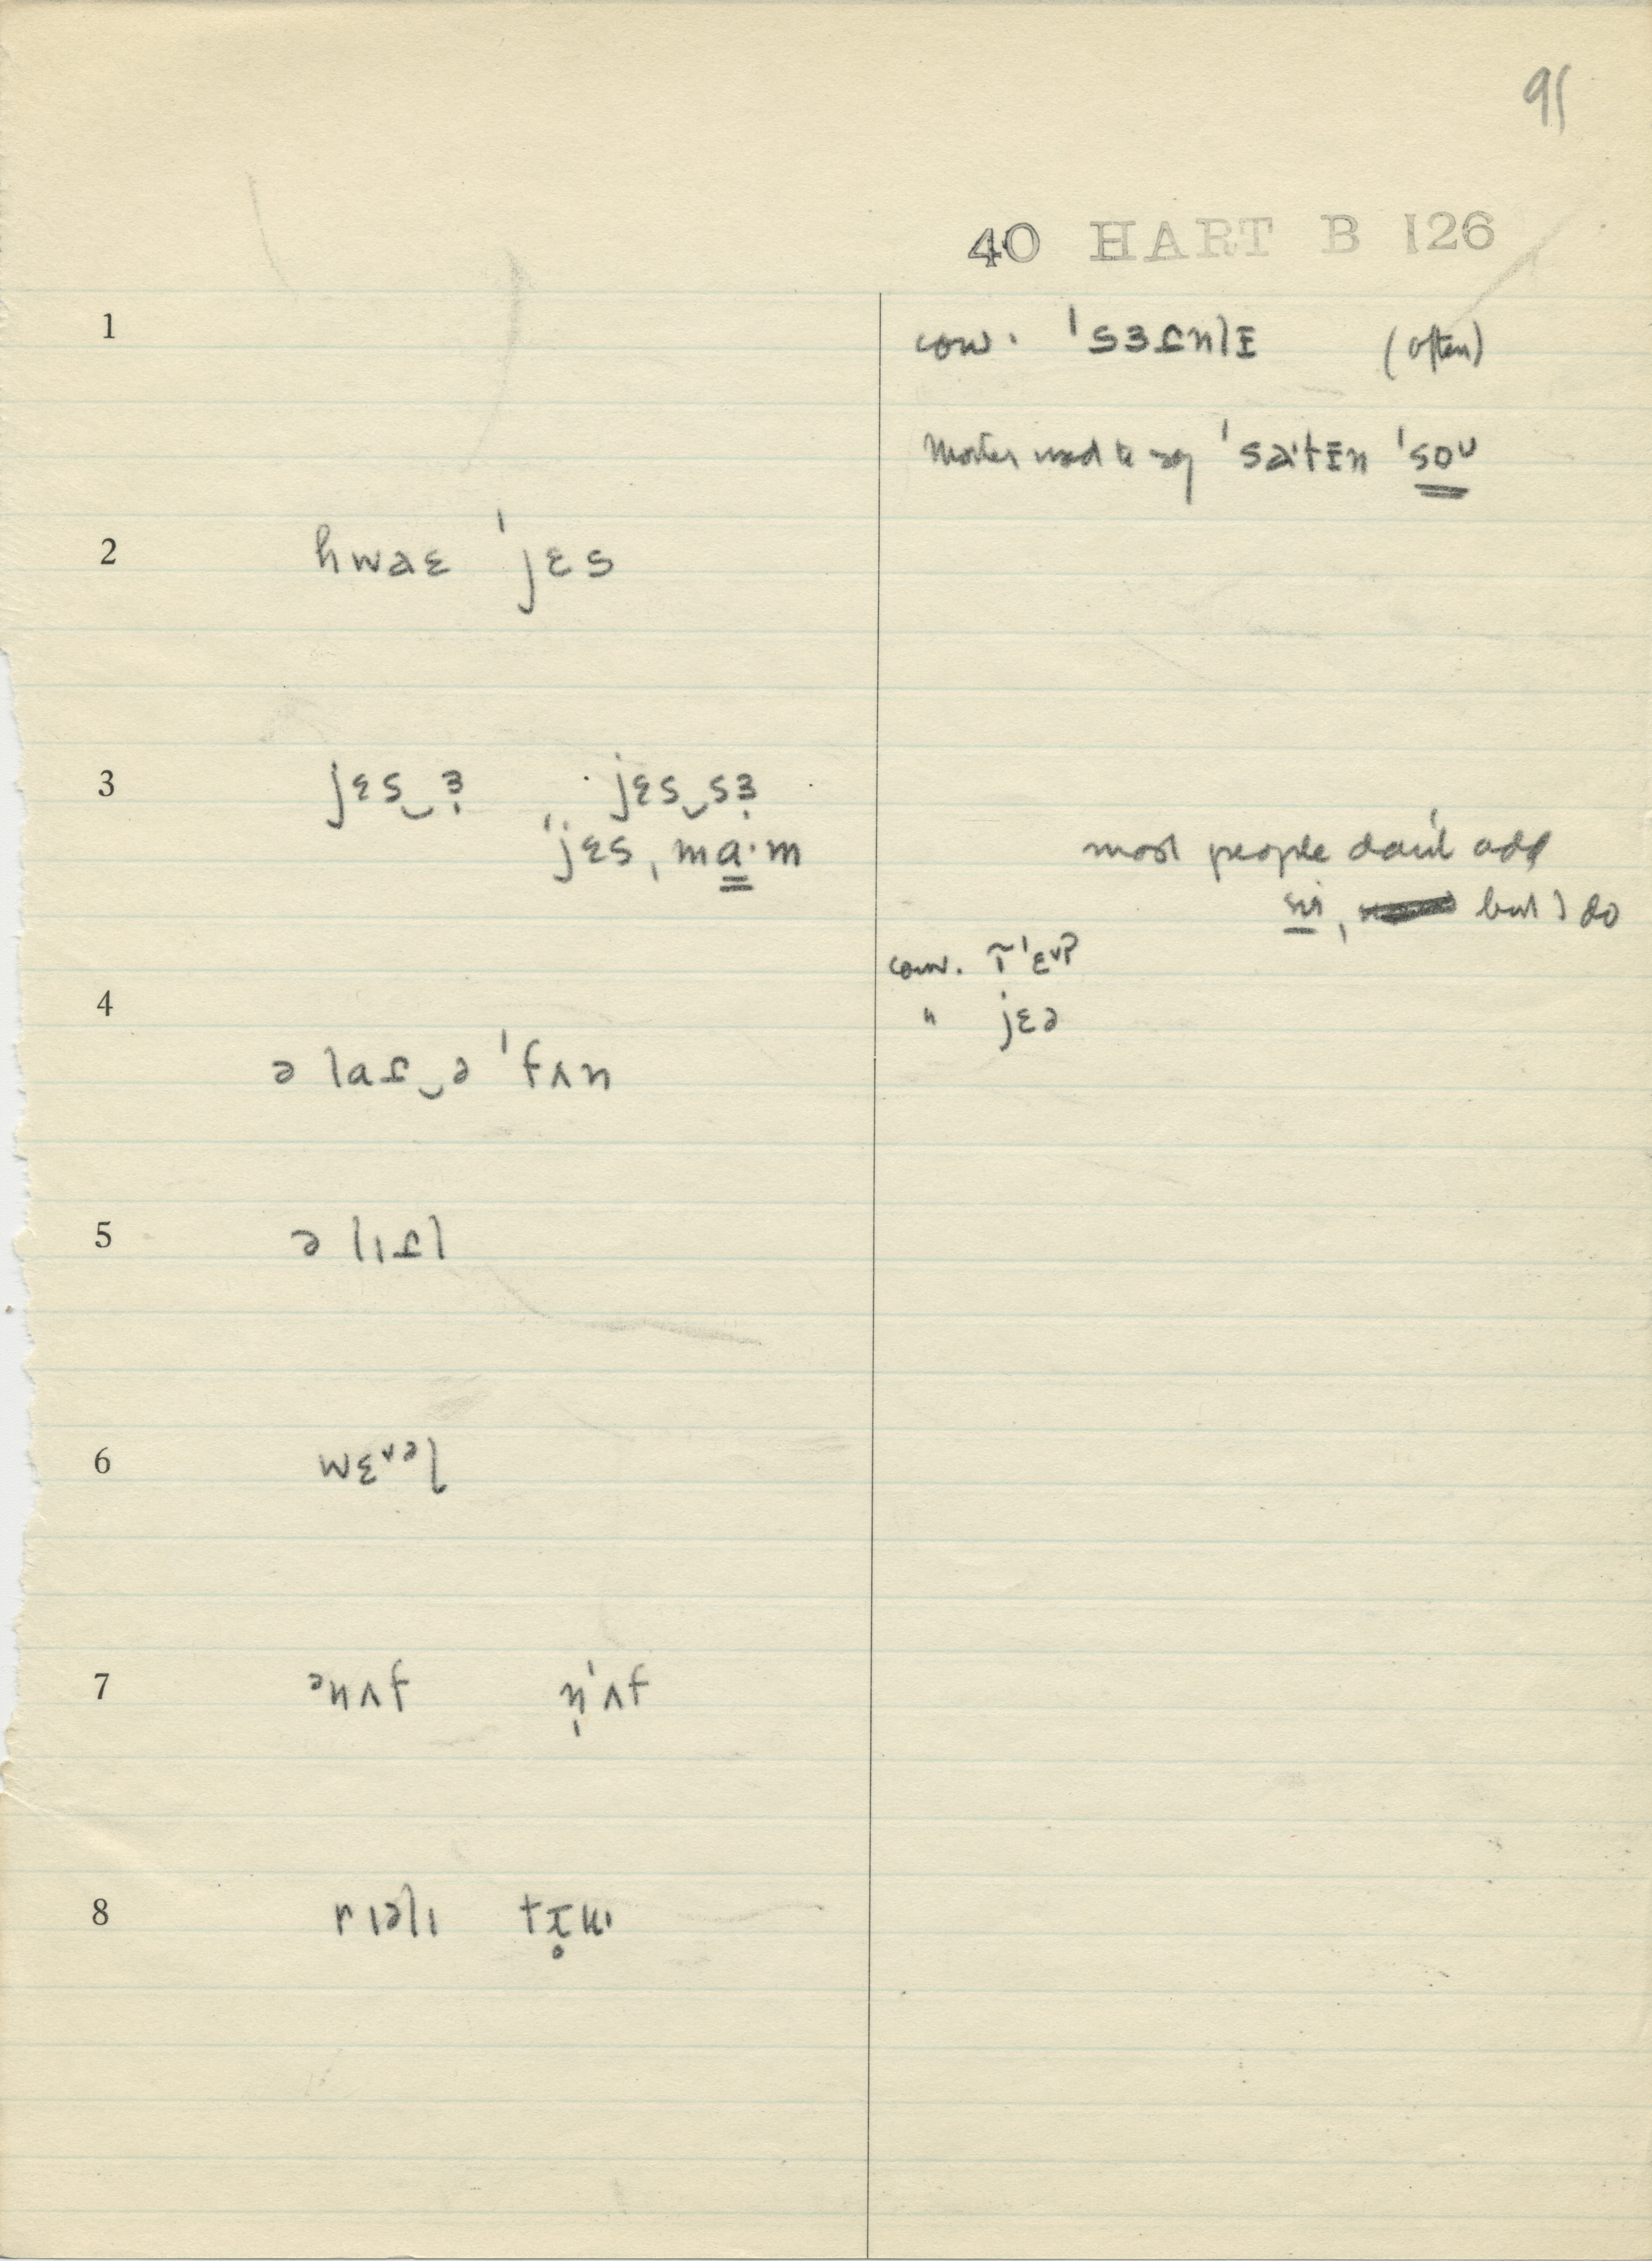 91
40 HART B 126
1 conv. ˈsɜɾnlɪ (often)
Mother used to say ˈsatɪn ˈsoʊ
2 hwaɛ ˈjɛs
3 jɛs‿ɜ̣ jɛs‿sɜ̣
ˈjɛs, ma·m
most people don't add
sir, but I do
conv.
4 " jɛə
ə laɾ‿ə ˈfʌn
5 ə lɪɾl
6 wɛᵛᵊl
7 ᵊnʌf n̩ˈʌf
8 rɪəlɪ